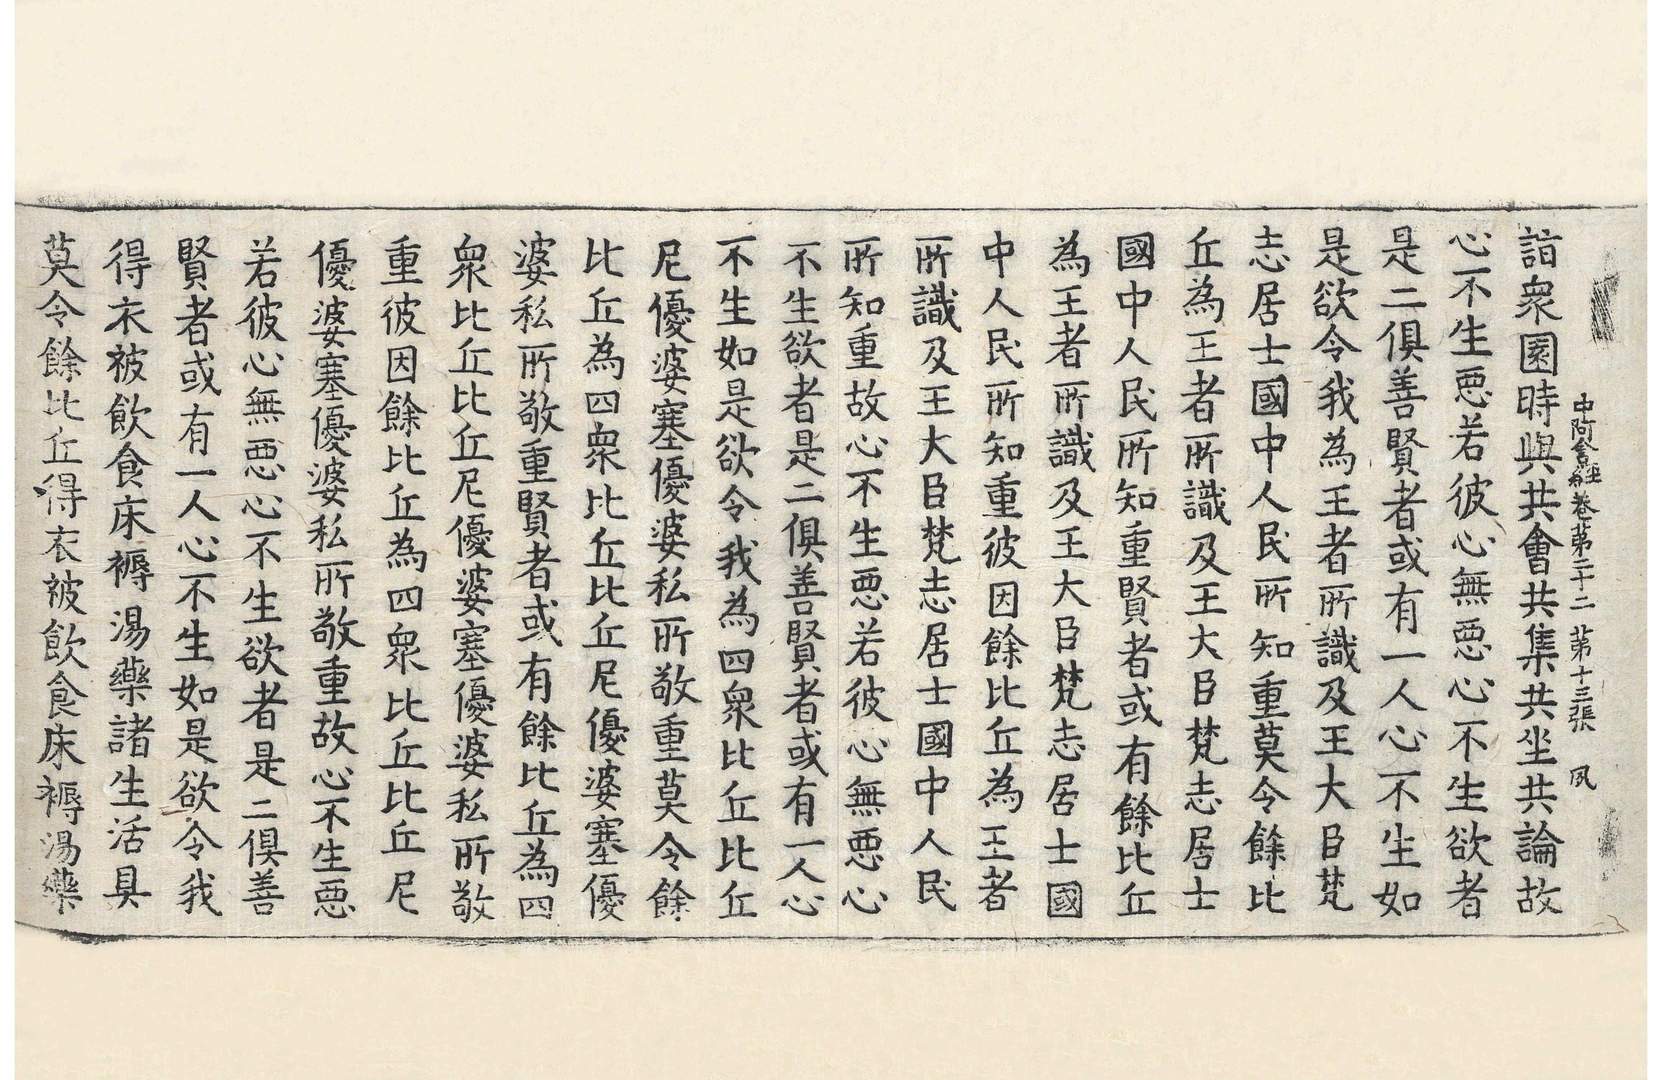 中阿含經卷苐二十二 苐十三張 夙
詣衆園時與共會共集共坐共論故
心不生惡若彼心無惡心不生欲者
是二俱善賢者或有一人心不生如
是欲令我為王者所識及王大臣梵
志居士國中人民所知重莫令餘比
丘為王者所識及王大臣梵志居士
國中人民所知重賢者或有餘比丘
為王者所識及王大臣梵志居士國
中人民所知重彼因餘比丘為王者
所識及王大臣梵志居士國中人民
所知重故心不生惡若彼心無惡心
不生欲者是二俱善賢者或有一人心
不生如是欲令我為四衆比丘比丘
尼優婆塞優婆私所敬重莫令餘
比丘為四衆比丘比丘尼優婆塞優
婆私所敬重賢者或有餘比丘為四
衆比丘比丘尼優婆塞優婆私所敬
重彼因餘比丘為四衆比丘比丘尼
優婆塞優婆私所敬重故心不生惡
若彼心無惡心不生欲者是二俱善
賢者或有一人心不生如是欲令我
得衣被飲食床褥湯藥諸生活具
莫令餘比丘得衣被飲食床褥湯藥